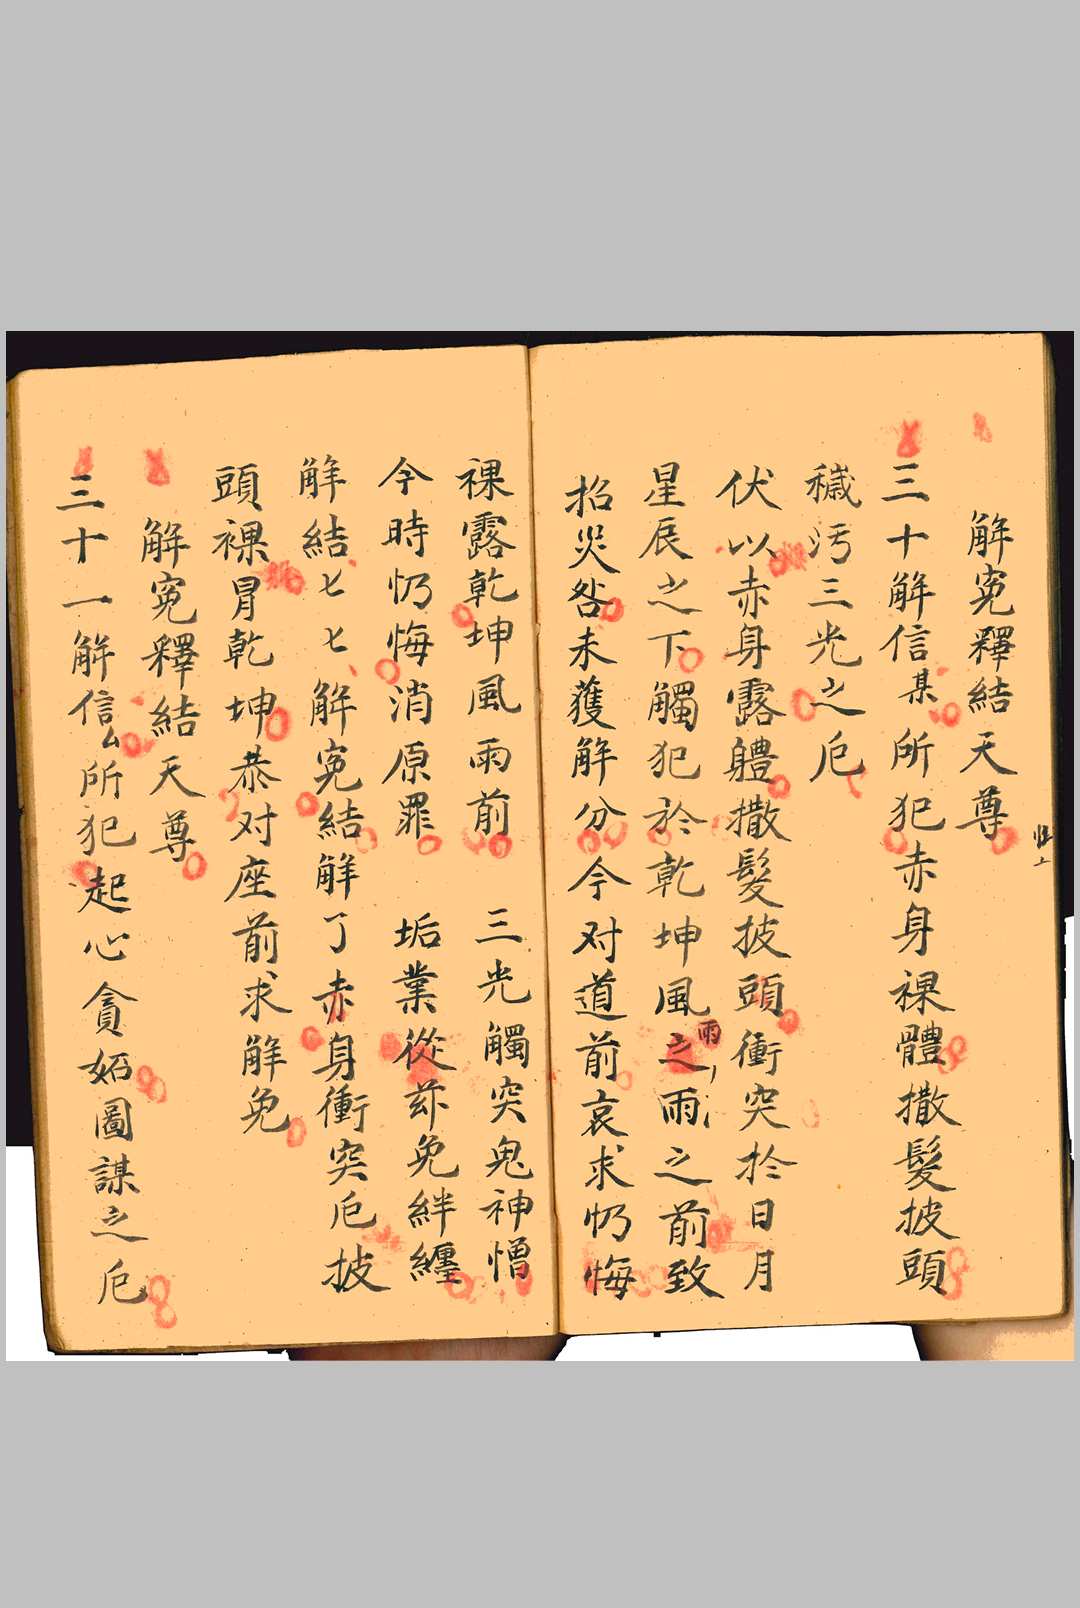 解寃釋結天尊
三十解信某所犯赤身裸體撒髮披頭
穢污三光之厄
伏以赤身露軆撒髮披頭衝突於日月
星辰之下觸犯於乾坤風雨之雨之前致
招災咎未獲解分今对道前哀求忏悔
裸露乾坤風雨前 三光觸突鬼神憎
今時忏悔消原罪 垢業從茲免絆纏
解結七七解寃結解了赤身衝突厄披
頭裸冐乾坤恭对座前求解免
解寃釋結天尊
三十一解信厶所犯起心貪妬圖謀之厄